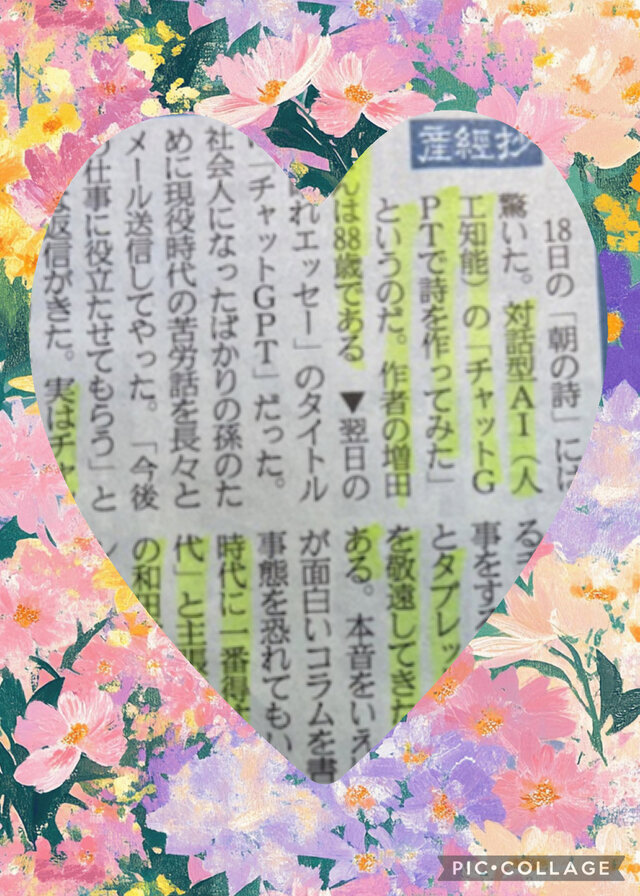 産経抄
18日の「朝の詩」には
驚いた。対話型AI(人
工知能)の「チャットG
PTで詩を作ってみた」
というのだ。作者の増田
んは88歳である▼翌日の
れエッセー」のタイトル
「チャットGPT」だった。
社会人になったばかりの孫のた
めに現役時代の苦労話を長々と
メール送信してやった。「今後
仕事に役立たせてもらう」と
返信がきた。実はチャ
る
事をする
とタブレッ
を敬遠してきた
ある。本音をいえ
が面白いコラムを書
事態を恐れてもい
時代に一番得
代」と主張
の和田
PIC•COLLAGE